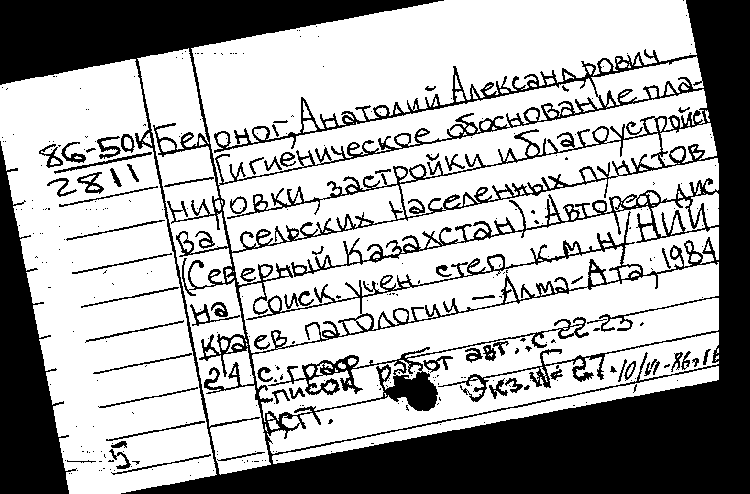 86-50К
2811
Белоног, Анатолий Александрович
Гигиеническое обоснование пла-
нировки, застройки и благоустройст
ва сельских населенных пунктов
(Северный Казахстан): Автореф. дис.
на соиск. учен. степ к.м.н/НИИ
краев. патологии.—Алма-Ата, 1984
24 с.: граф.
Список работ авт.: с. 22-23.
ДСП. Экз. № 27. 10/VI-86г.
5.